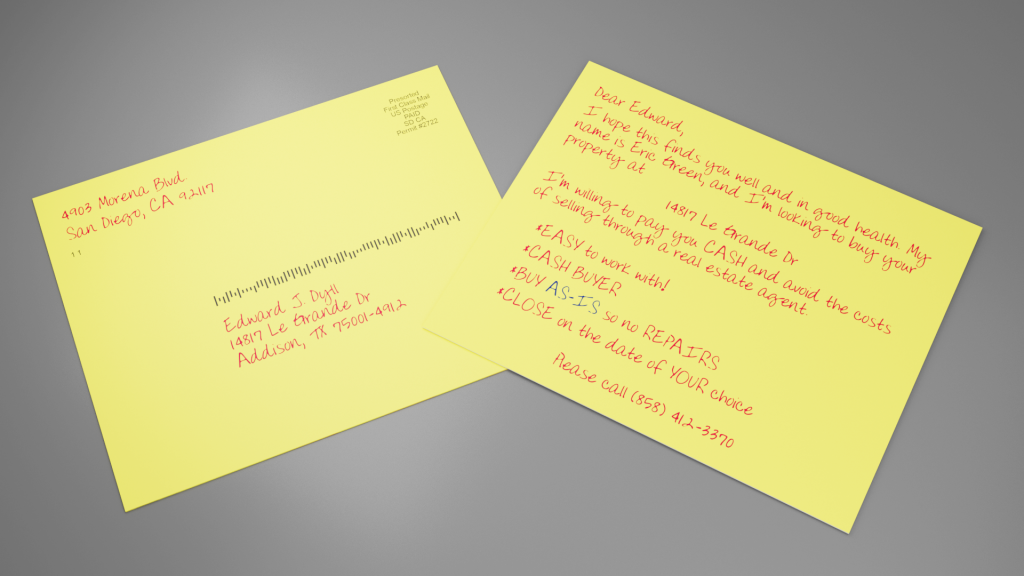 Presorted
First Class Mail
US Postage
PAID
SD CA
Permit #2722
4903 Morena Blvd.
San Diego, CA 92117
11
Edward J. Dytl
14817 Le Grande Dr
Addison, TX 75001-4912
Dear Edward,
I hope this finds you well and in good health. My
name is Eric Green, and I'm looking to buy your
property at
14817 Le Grande Dr
I'm willing to pay you CASH and avoid the costs
of selling through a real estate agent.
*EASY to work with!
*CASH BUYER
*BUY AS-IS so no REPAIRS
*CLOSE on the date of YOUR choice
Please call (858) 412-3370